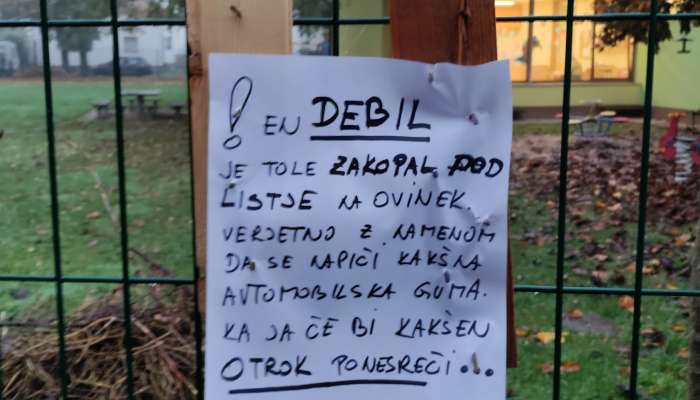 ! EN DEBIL
JE TOLE ZAKOPAL POD
LISTJE NA OVINEK.
VERJETNO Z NAMENOM
DA SE NAPIČI KAKŠNA
AVTOMOBILSKA GUMA.
KA JA ČE BI KAKŠEN
OTROK PONESREČI...